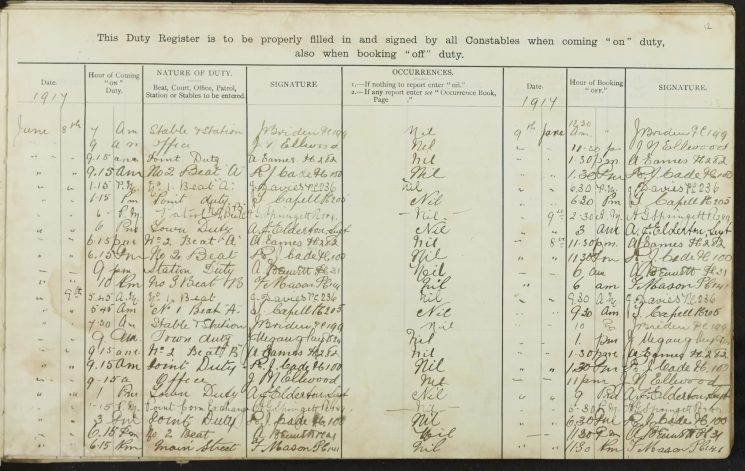 12
This Duty Register is to be properly filled in and signed by all Constables when coming "on" duty,
also when booking "off" duty.
Date. Hour of Coming "ON" Duty. NATURE OF DUTY. Beat, Court, Office, Patrol, Station or Stables to be entered. SIGNATURE OCCURRENCES. 1.—If nothing to report enter "nil." 2.—If any report enter see "Occurrence Book, Page ." Date. Hour of Booking "OFF." SIGNATURE.
1917 1917
June 8th 7 Am Stable & Station Nil 9th June 12.30 Am
9 am Office J N Ellwood Nil 11-30 p J N Ellwood
9.15 am Joint Duty A Eames Pc 282 Nil 1.30 pm A Eames Pc 282
9.15 Am No 2 Beat A R J Cade Pc 100 Nil 1.30 Pm R J Cade Pc 100
1.15 No 1 Beat "A" J Davies Pc 236 Nil 6.30 J Davies Pc 236
1.15 Pm Point duty J Capell Pc 205 Nil 6.30 Pm J Capell Pc 205
6 - Nil - 9th 2.30
6 Pm Town Duty A E Elderton Sergt Nil 3 am A E Elderton Sergt
6.15 pm No 2 Beat "A" A Eames Pc 282 Nil 8th 11.30 pm A Eames Pc 282
6.15 Pm No 2 Beat R J Cade Pc 100 Nil 11.30 Pm R J Cade Pc 100
9 pm Station Duty A Bennett Pc 31 Nil 6 am A Bennett Pc 31
10 Pm No 3 Beat F Mason Pc 141 Nil 6 am F Mason Pc 141
9th 5.45 No 1 Beat J Davies Pc 236 Nil 9.30 J Davies Pc 236
5.45 Am No 1 Beat "A" J Capell Pc 205 Nil 9.30 Am J Capell Pc 205
7.30 Am Stable & Station Nil 10
9 Am Town duty Nil 1 pm
9.15 am No 2 Beat B A Eames Pc 282 Nil 1.30 pm A Eames Pc 282
9.15 Am Joint Duty R J Cade Pc 100 Nil 1.30 Pm R J Cade Pc 100
9.15 a Office J N Ellwood Nil 11 pm J N Ellwood
1 Pm Town Duty A E Elderton Sergt Nil 9 Pm A E Elderton Sergt
1.15 Nil 5.30
3 Pm Joint Duty R J Cade Pc 100 Nil 6.30 Pm R J Cade Pc 100
6.15 Pm No 2 Beat A Bennett Pc 31 Nil 11.30 Pm A Bennett Pc 31
6.15 Pm Main Street F Mason Pc 141 Nil 11.30 Pm F Mason Pc 141